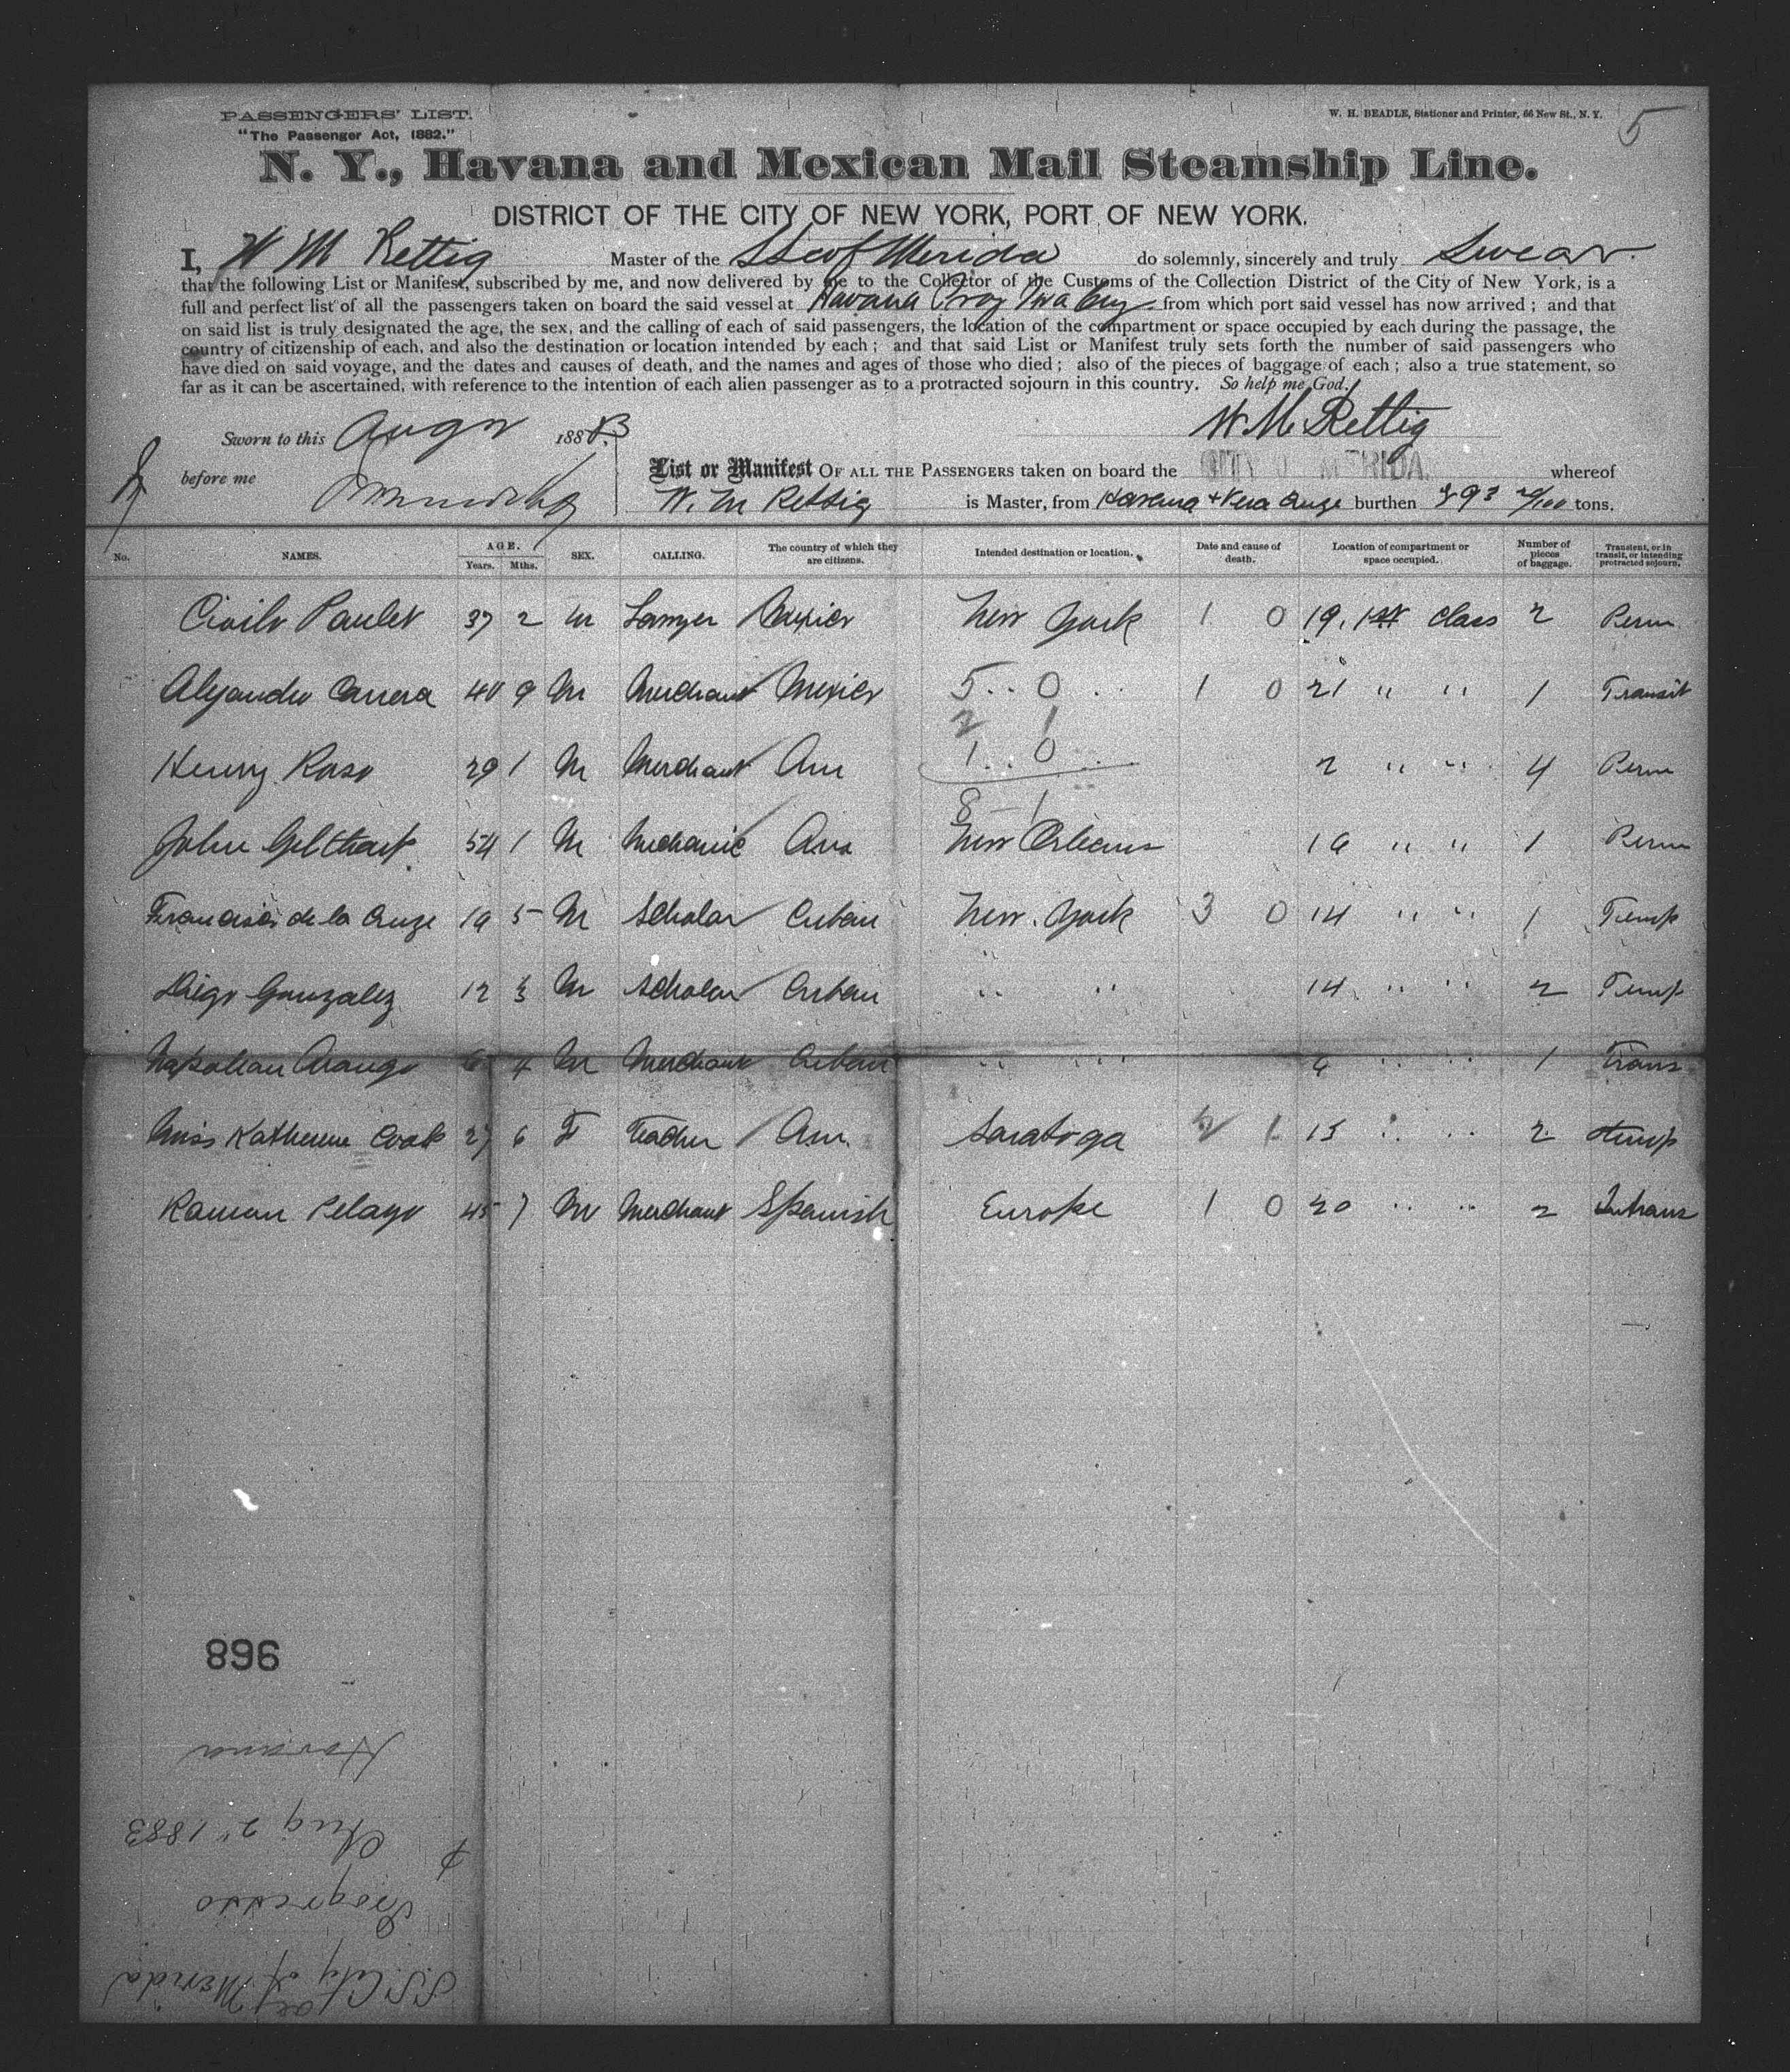 PASSENGERS' LIST.
"The Passenger Act, 1882."
W. H. BEADLE, Stationer and Printer, 66 New St., N. Y.
5
N. Y., Havana and Mexican Mail Steamship Line.
DISTRICT OF THE CITY OF NEW YORK, PORT OF NEW YORK.
I, W M Rettig Master of the SS City of Merida do solemnly, sincerely and truly Swear
that the following List or Manifest, subscribed by me, and now delivered by me to the Collector of the Customs of the Collection District of the City of New York, is a
full and perfect list of all the passengers taken on board the said vessel at Havana from which port said vessel has now arrived; and that
on said list is truly designated the age, the sex, and the calling of each of said passengers, the location of the compartment or space occupied by each during the passage, the
country of citizenship of each, and also the destination or location intended by each; and that said List or Manifest truly sets forth the number of said passengers who
have died on said voyage, and the dates and causes of death, and the names and ages of those who died; also of the pieces of baggage of each; also a true statement, so
far as it can be ascertained, with reference to the intention of each alien passenger as to a protracted sojourn in this country. So help me God.
W. M. Rettig
Sworn to this Aug 2 1883
before me
List or Manifest OF ALL THE PASSENGERS taken on board the CITY OF MERIDA whereof
W. M Rettig is Master, from Havana + Vera Cruz burthen tons.
No. NAMES. AGE. Years. Mths. SEX. CALLING. The country of which they are citizens. Intended destination or location. Date and cause of death. Location of compartment or space occupied. Number of pieces of baggage. Transient, or in transit, or intending protracted sojourn.
Paulet 37 2 M Lawyer Mexico New York 1 0 19. 1st Class 2 Perm
Alejandro Carrera 40 9 M Merchant Mexico 5 .. 0 .. 1 0 21 " " 1 Transit
2 1
Henry Rose 29 1 M Merchant Am 1 .. 0 .. 2 " " 4 Perm
8 - 1
John 54 1 M Mechanic Am New Orleans " " 1 Perm
Francisco de la Cruze 19 5 M Scholar Cuban New York 3 0 14 " " 1 Temp
Diego Gonzalez 12 3 M Scholar Cuban " " 14 " " 2 Temp
Napolean Arango 4 M Merchant Cuban " " " " 1 Trans
Miss Katherine Cook 27 6 F Teacher Am. Saratoga 2 1 15 " " 2 Temp
Ramon Pelayo 45 7 M Merchant Spanish Europe 1 0 20 " " 2 Intrans
896
Havana
Aug 2" 1883
&
Progresso
S.S. City of Merida